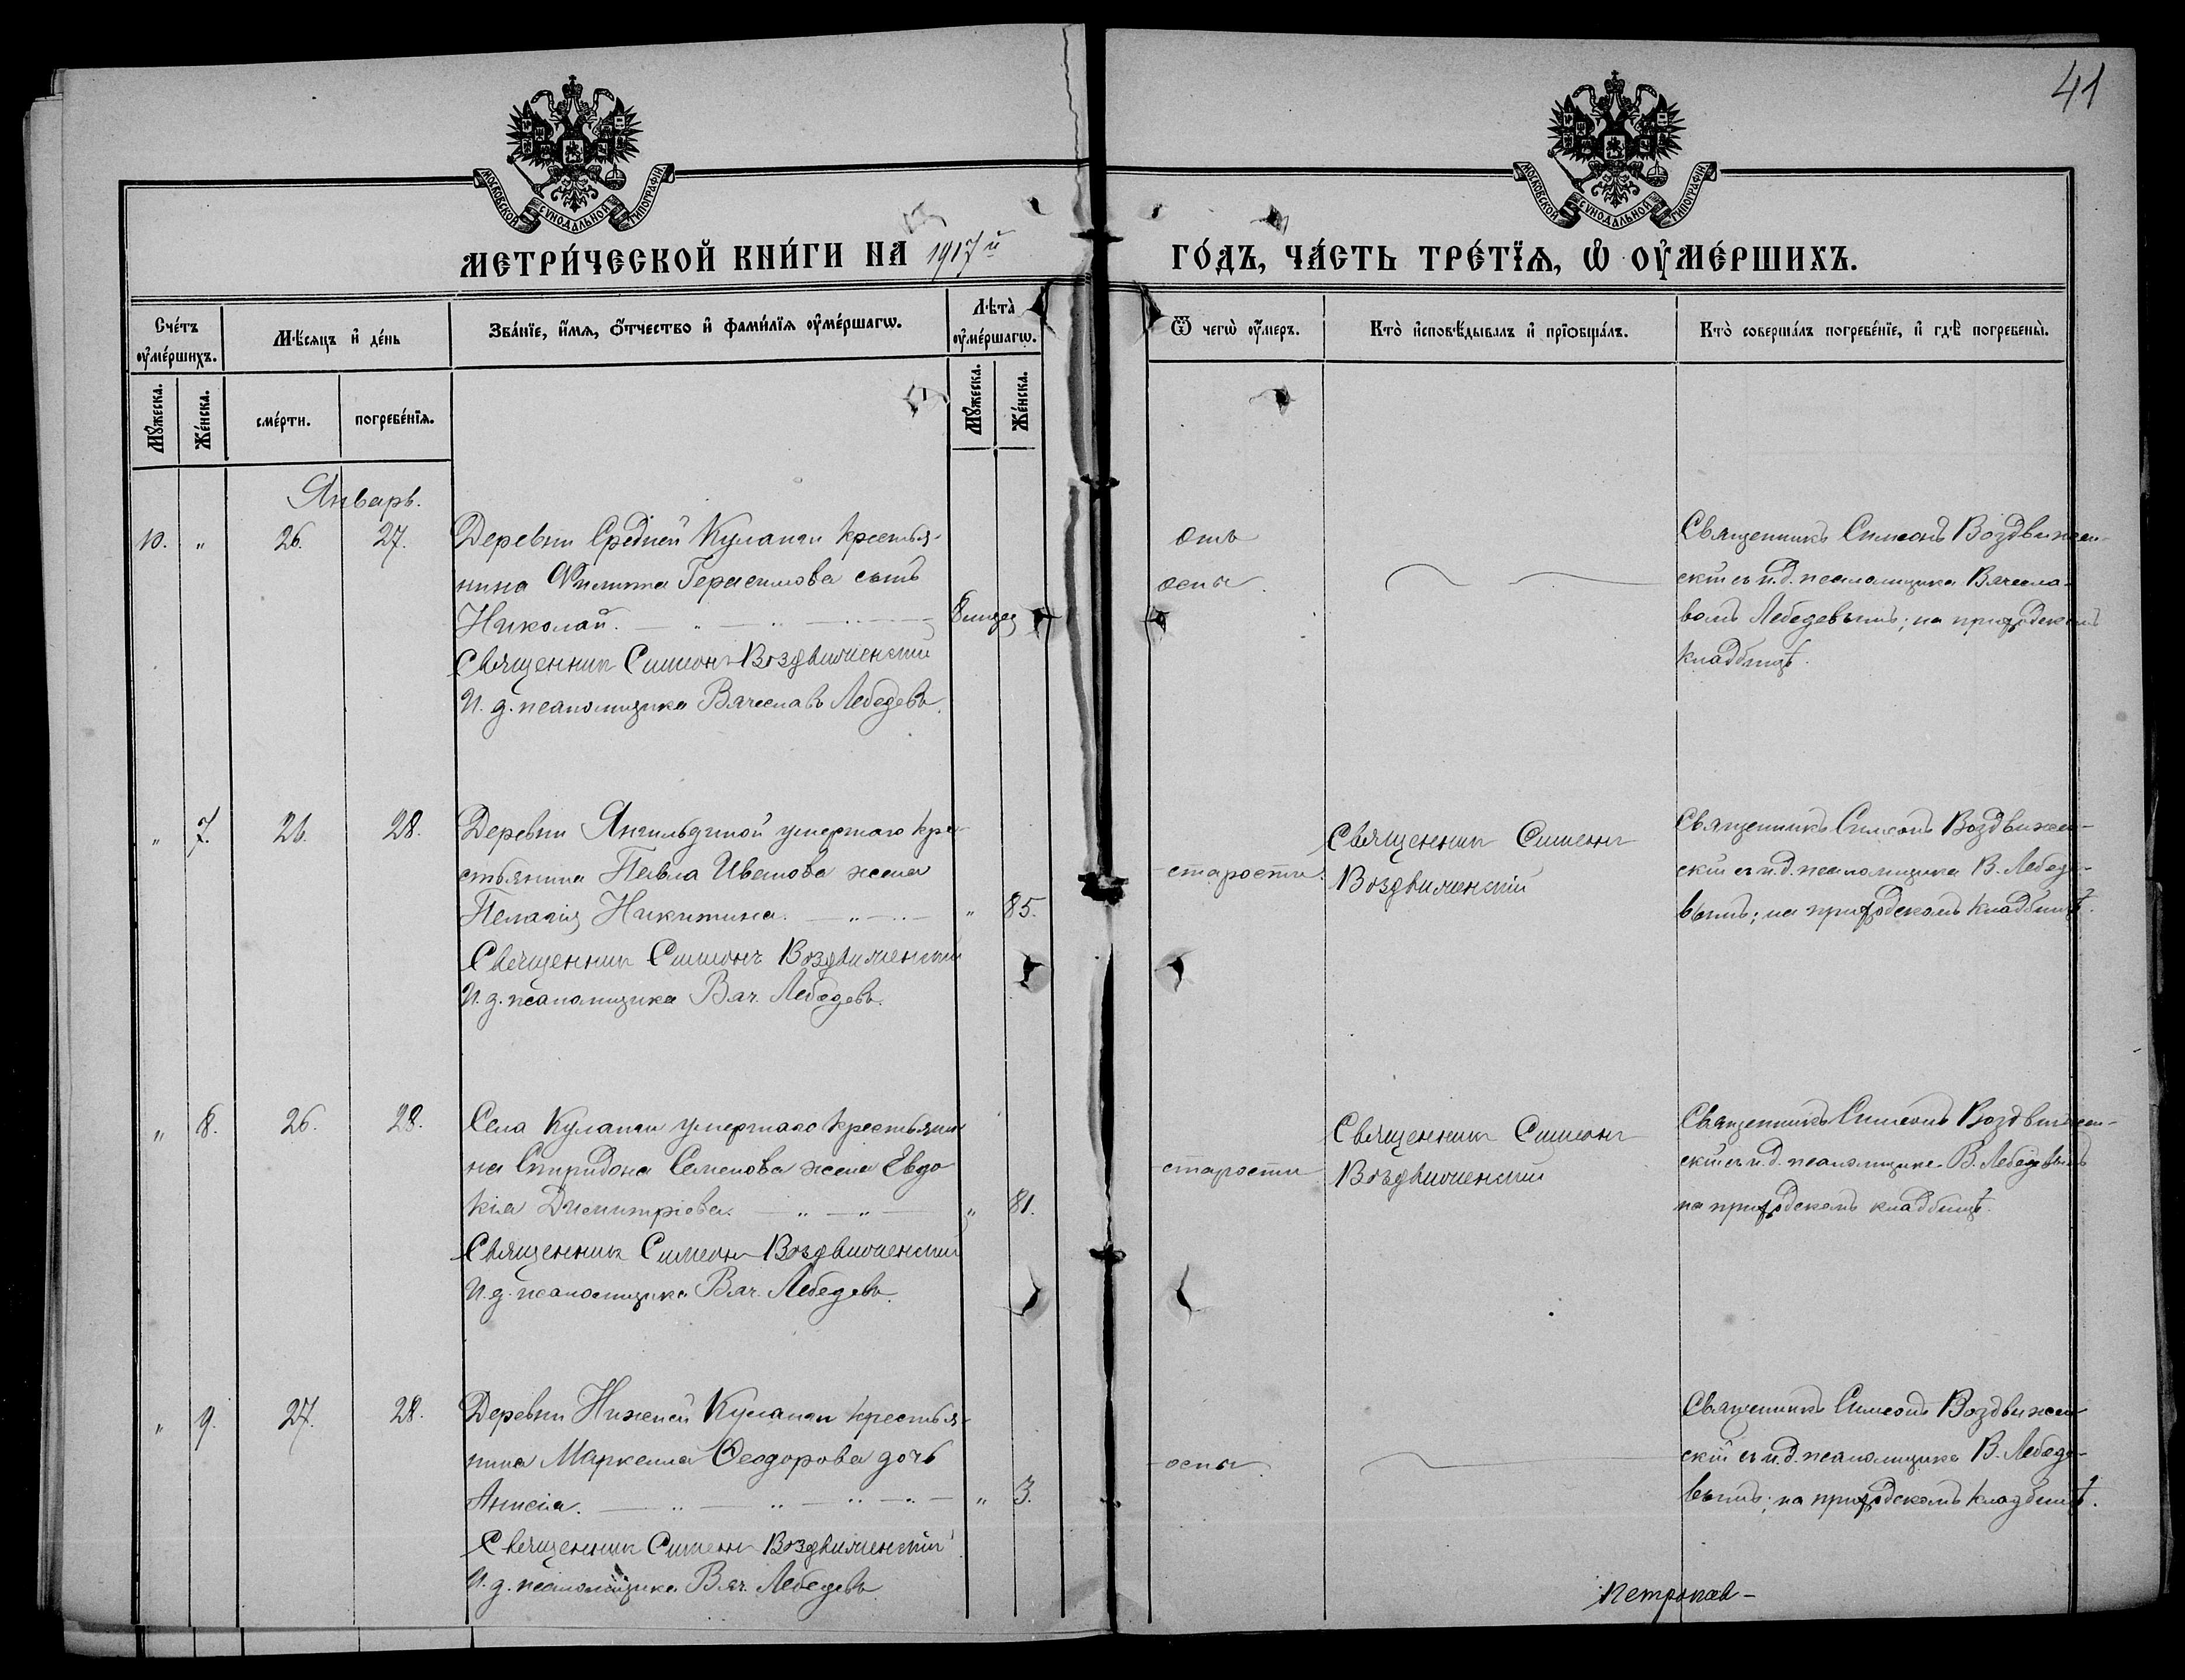 41
МОСКОВСКОЙ СѴНОДАЛЬНОЙ ТИПОГРАФІИ
МОСКОВСКОЙ СѴНОДАЛЬНОЙ ТИПОГРАФІИ
МЕТРИ́ЧЕСКОЙ КНИ́ГИ НА 1917й
ГО́ДЪ, ЧА́СТЬ ТРЕ́ТЇѦ, Ѡ҆ ОУ҆МЕ́РШИХЪ.
Сче́тъ оу҆ме́ршихъ.
Мѣ́сяцъ и҆ де́нь
Зва́нїе, и҆́мѧ, ѻ҆́тчество и҆ фами́лїѧ оу҆ме́ршагѡ.
Лѣта̀ оу҆ме́ршагѡ.
Ѿ чегѡ̀ оу҆́меръ.
Кто̀ и҆сповѣ́дывалъ и҆ прїѡбща́лъ.
Кто̀ соверша́лъ погребе́нїе, и҆ гдѣ̀ погребены̀.
Мꙋ́жеска.
Же́нска.
сме́рти.
погребе́нїѧ.
Мꙋ́жеска.
Же́нска.
Январь.
10. " 26. 27.
Деревни Средней Кулапги крестья-
нина Филиппа Герасимова сынъ
Николай.
Священник Симеонъ Воздвиженскій
И. д. псаломщика Вячеславъ Лебедевъ.
отъ
оспы.
Священникъ Симеонъ Воздвижен-
скій съ и. д. псаломщика Вячесла-
вомъ Лебедевымъ; на приходскомъ
кладбищѣ.
" 7. 26. 28.
умершаго кре-
стьянина Павла Иванова жена
Пелагія Никитина. " 85.
Священник Симеонъ Воздвиженскій
И. д. псаломщика Вяч. Лебедевъ.
старости.
Священник Симеонъ
Воздвиженскій
Священникъ Симеонъ Воздвижен-
скій съ и. д. псаломщика В. Лебеде-
вымъ; на приходскомъ кладбищѣ.
" 8. 26. 28.
Села Кулапги умершаго крестьяни-
на Спиридона Семенова жена Евдо
кія Димитріева. " 81.
Священник Симеонъ Воздвиженскій
И. д. псаломщика Вяч. Лебедевъ.
старости
Священник Симеонъ
Воздвиженскій
Священникъ Симеонъ Воздвижен-
скій съ и. д. псаломщика В. Лебедевымъ
на приходскомъ кладбищѣ.
" 9. 27. 28.
Деревни Нижней Кулапги крестья-
нина Маркелла Ѳеодорова дочь
Анисія. " 3.
Священник Симеонъ Воздвиженскій
И. д. псаломщика Вяч. Лебедевъ
оспы.
Священникъ Симеонъ Воздвижен-
скій съ и. д. псаломщика В. Лебеде-
вымъ; на приходскомъ кладбищѣ.
Петропав-